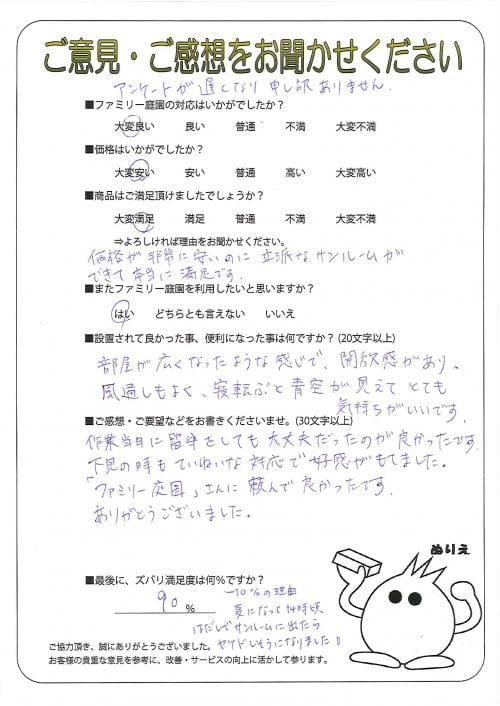 ご意見・ご感想をお聞かせください
アンケートが遅くなり申し訳ありません.
■ファミリー庭園の対応はいかがでしたか？
大変良い 良い 普通 不満 大変不満
■価格はいかがでしたか？
大変安い 安い 普通 高い 大変高い
■商品はご満足頂けましたでしょうか？
大変満足 満足 普通 不満 大変不満
⇒よろしければ理由をお聞かせください。
価格が非常に安いのに立派なサンルームが
できて本当に満足です.
■またファミリー庭園を利用したいと思いますか？
はい どちらとも言えない いいえ
■設置されて良かった事、便利になった事は何ですか？(20文字以上)
部屋が広くなったような感じで、開放感があり、
風通しもよく、寝転ぶと青空が見えてとても
気持ちがいいです.
■ご感想・ご要望などをお書きくださいませ。(30文字以上)
作業当日に留守をしても大丈夫だったのが良かったです.
下見の時もていねいな対応で好感がもてました。
「ファミリー庭園」さんに頼んで良かったです.
ありがとうございました。
ぬりえ
■最後に、ズバリ満足度は何％ですか？
90 %
−10%の理由
夏になって14時頃
はだしでサンルームに出たら
ヤケドしそうになりました。
ご協力頂き、誠にありがとうございました。
お客様の貴重な意見を参考に、改善・サービスの向上に活かして参ります。